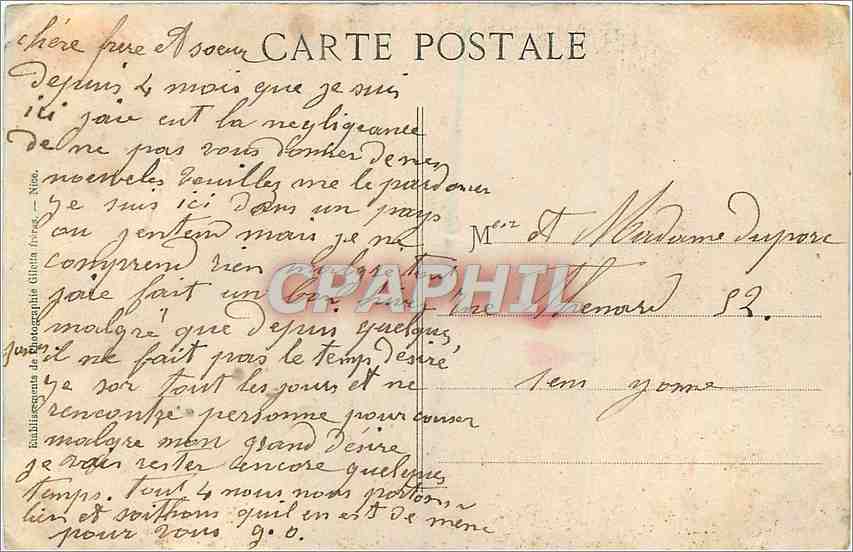 CARTE POSTALE
chére frere et soeur
depuis 4 mois que je suis
ici jaie eut la negligeance
de ne pas vous donner de mes
nouveles veuilles me le pardoner
je suis ici dans un pays
ou jentend mais je ne
comprend rien malgre tout
jaie fait un bon
malgré que depuis quelques
jours il ne fait pas le temp désiré
je sor tout les jours et ne
rencontre personne pour causer
malgre mon grand désire
je vais rester encore quelques
temps. tout 4 nous nous portons
bien et soithons quil en est de mene
pour vous g.o.
Etablissements de Photographie Giletta frères. — Nice.
Meur et Madame duporc
rue Thenard 52.
sens yonne
CPAPHIL